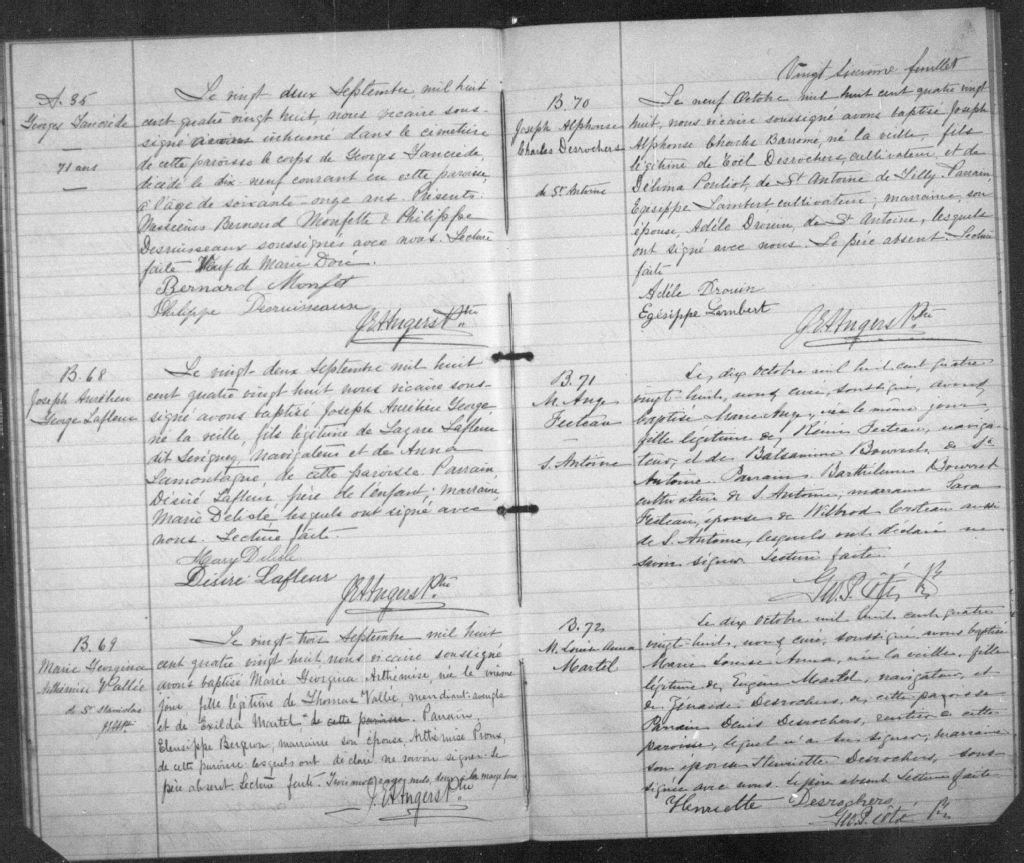 S. 35
Georges Lanciède
—
71 ans
—
Le vingt deux Septembre, mil huit
cent quatre vingt huit, nous vicaire sous-
signé avons inhumé dans le cimetière
de cette paroisse le corps de Georges Lanciède,
décédé le dix-neuf courant en cette paroisse,
à l'âge de soixante-onze ans. Présents.
Messieurs Bernard Monfette & Philippe
Desruisseaux soussignés avec nous. Lecture
faite Veuf de Marie Doré.
Bernard Monfet
Philippe Desruisseaux
J.E. Angers Ptre
B. 68
Joseph Aurélien
George Lafleur
Le vingt-deux Septembre mil huit
cent quatre vingt huit nous vicaire sous-
signé avons baptisé Joseph Aurélien George
né la veille, fils légitime de Lazare Lafleur
dit Sevigney, navigateur et de Anna
Lamontagne, de cette paroisse Parrain
Désiré Lafleur frère de l'enfant; marraine
Marie Delisle lesquels ont signé avec
nous. Lecture faite.
Mary Delisle
Désire Lafleur
J.E. Angers Ptre
B. 69
Marie Georgina
Arthémise Vallée
de St Stanislas
Le vingt trois Septembre mil huit
cent quatre vingt huit, nous vicaire soussigné
avons baptisé Marie Georgina Arthémise, née le
jour fille légitime de Thomas Vallée, mendiant aveugle
et de Exilda Martel de cette paroisse. Parrain,
Eleusippe Bergeron, marraine son épouse, Arthémise Proux,
de cette paroisse lesquels ont déclaré ne savoir signer le
père absent. Lecture faite. Trois mots rayés nuls, deux à la marge bons
J.E. Angers Ptre
Vingt sixième feuillet
B. 70
Joseph Alphonse
Charles Desrochers
de St. Antoine
Le neuf Octobre mil huit cent quatre vingt
huit, nous vicaire soussigné avons baptisé Joseph
Alphonse Charles Barromé, né la veille, fils
légitime de Noël Desrochers, cultivateur, et de
Délima Pouliot, de St Antoine de Tilly. Parrain,
Egésippe Lambert cultivateur; marraine, son
épouse, Adèle Drouin, de St Antoine, lesquels
ont signé avec nous. Le père absent. Lecture
faite
Adèle Drouin
Egésippe Lambert
J.E. Angers Ptre
B. 71
M. Ange
Fecteau
S. Antoine
Le, dix Octobre mil huit cent quatre
vingt-huit, nous, curé, soussigné, avons
baptisé Marie Ange, née le même jour,
fille légitime de, Rémi Fecteau, naviga-
teur, et de Balsamine Bouvret, de St
Antoine. Parrain, Barthelemi Bouvret
cultivateur de S. Antoine, marraine Sara
Fecteau, épouse de Wilbrod Croteau aussi
de S. Antoine, lesquels ont déclaré ne
savoir signer. Lecture faite.
Geo. P. Côté, Ptre
B. 72
M. Louise Anna
Martel
Le dix Octobre mil huit cent quatre
vingt-huit, nous, curé, soussigné, avons baptisé
Marie Louise Anna, née la veille, fille
légitime de, Eugène Martel, navigateur, et
de Zénaïde Desrochers, de, cette paroisse
Parrain Denis Desrochers, rentier de cette
paroisse, lequel n'a su signer; marraine
son épouse Henriette Desrochers, sous-
signée avec nous. Le père absent Lecture faite
Henriette Desrochers
Geo. P. Côté Ptre